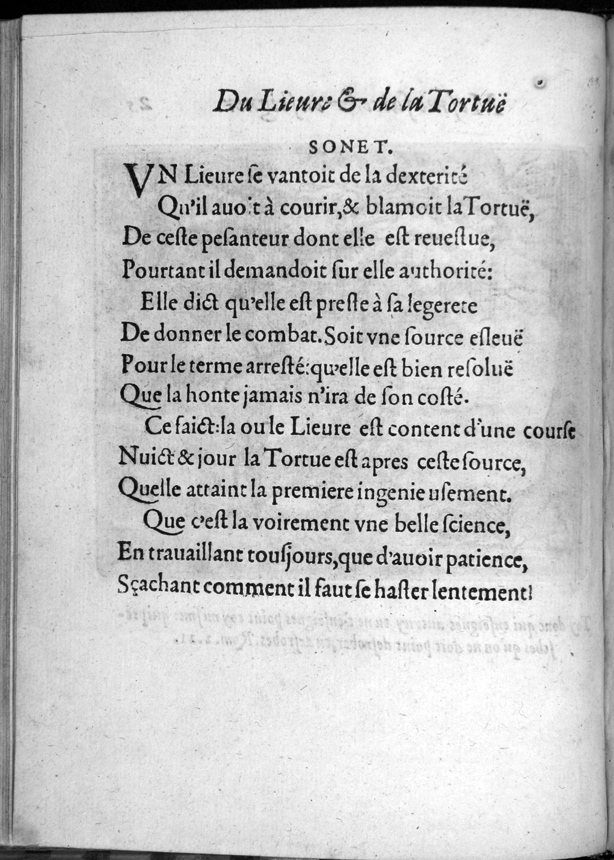 Du Lieure & de la Tortuë
SONET.
VN Lieure ſe vantoit de la dexterité
Qu'il auoit à courir, & blamoit la Tortuë,
De ceſte peſanteur dont elle eſt reueſtue,
Pourtant il demandoit ſur elle authorité:
Elle dict qu'elle eſt preſte à ſa legerete
De donner le combat. Soit vne ſource esleuë
Pour le terme arreſté: qu'elle eſt bien reſoluë
Que la honte jamais n'ira de ſon coſté.
Ce faict: la ou le Lieure eſt content d'une courſe
Nuict & jour la Tortue eſt apres ceſte ſource,
Quelle attaint la premiere ingenieuſement.
Que c'eſt la voirement vne belle ſcience,
En trauaillant touſjours, que d'auoir patience,
Sçachant comment il faut ſe haſter lentement!